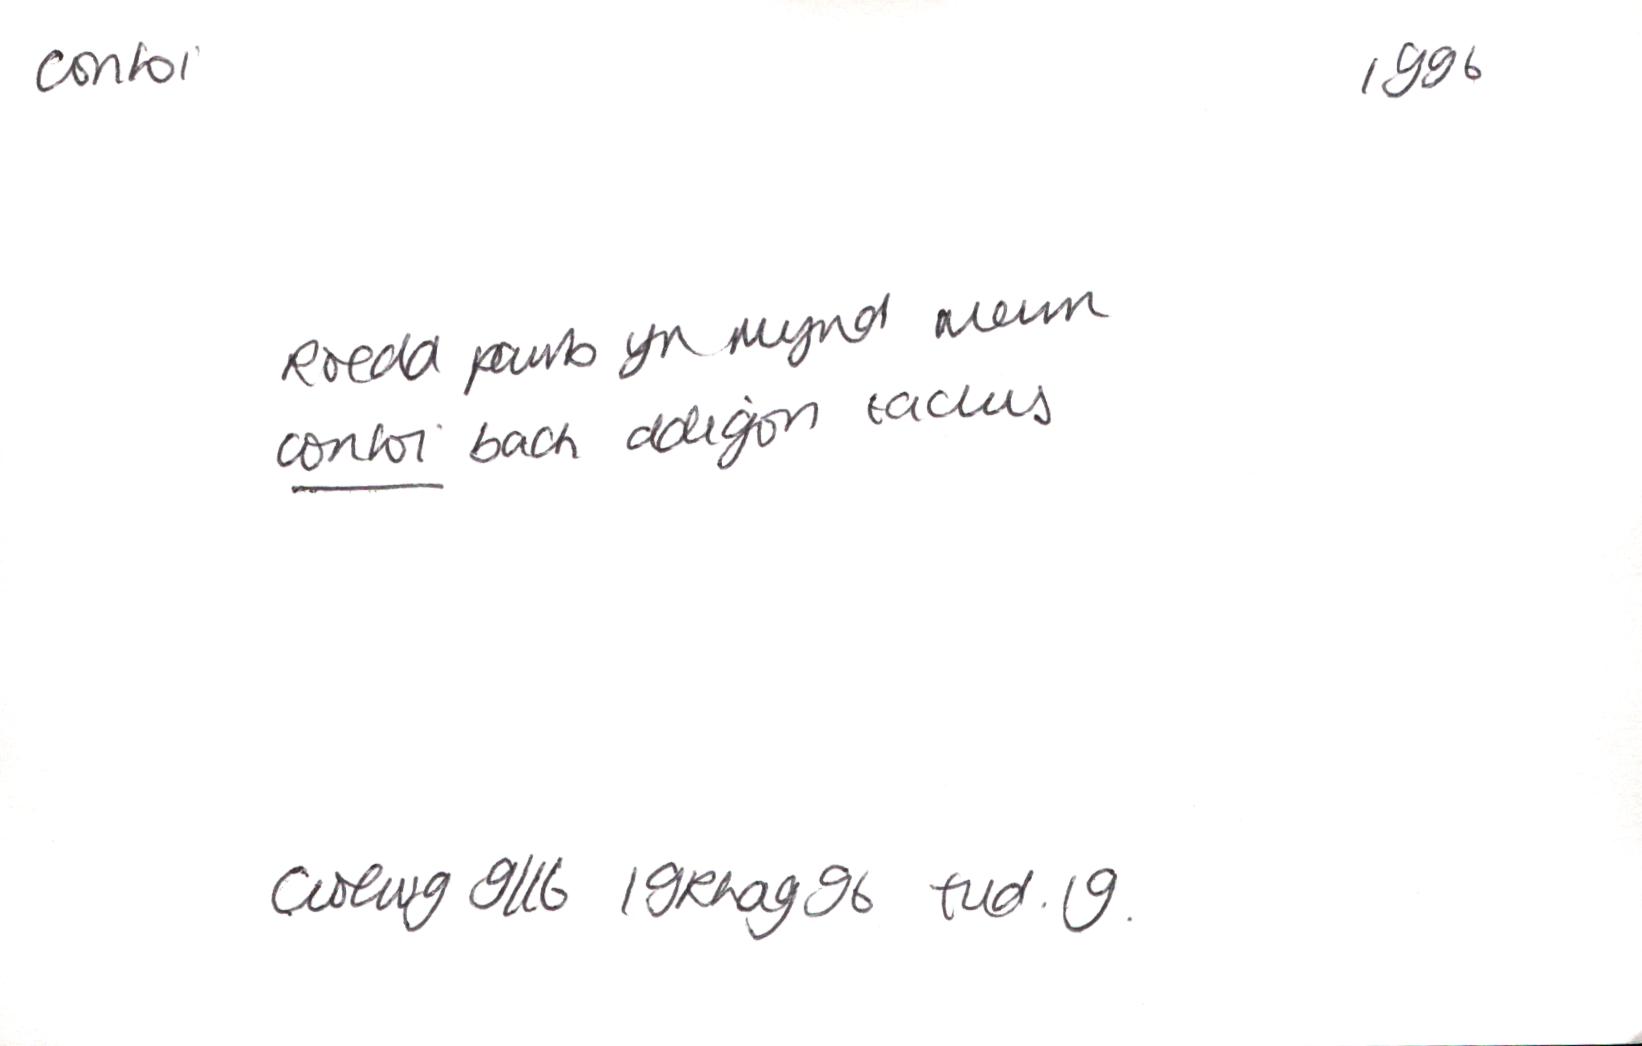 confoi 1996
Roedd pawb yn mynd mewn
confoi bach ddigon taclus
Golwg 9/16 19Rhag96 tud. 19.